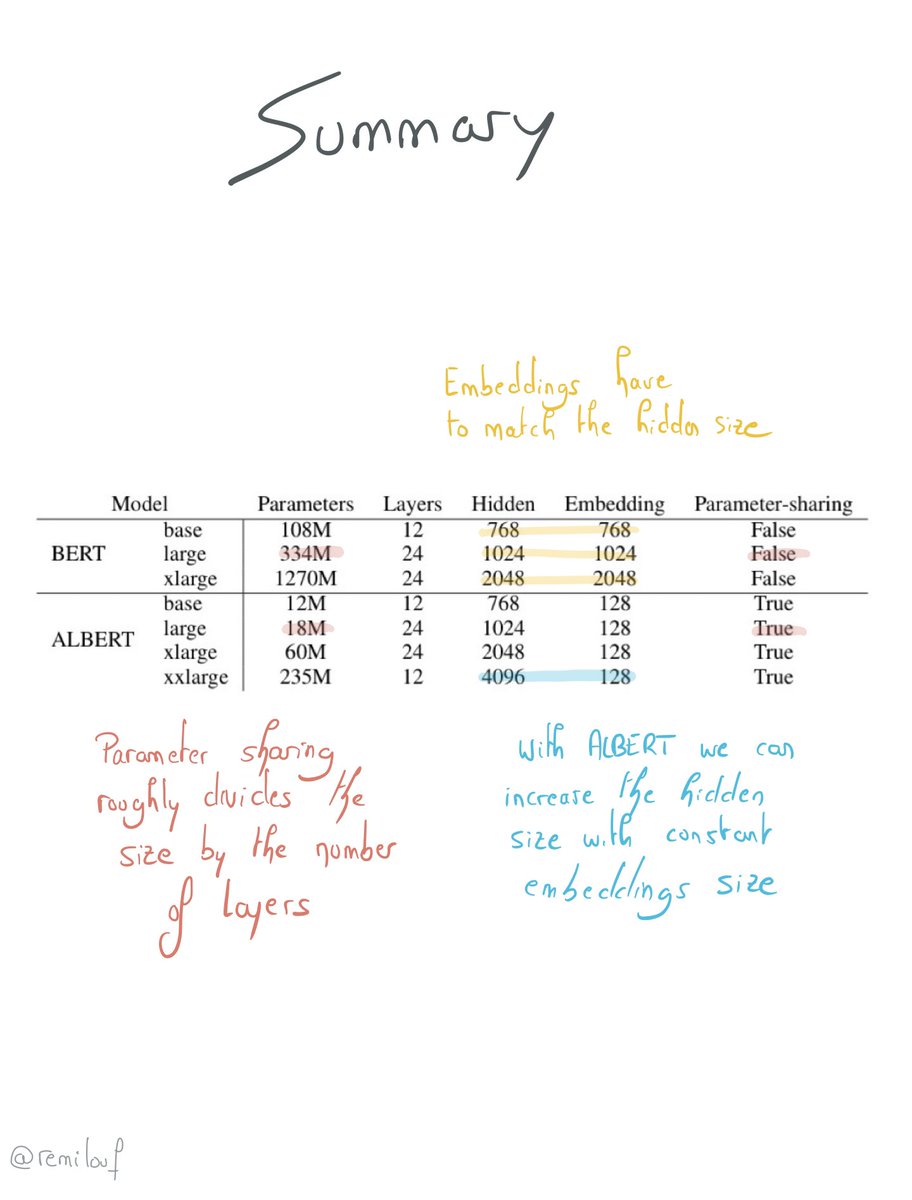 Summary
Embeddings have
to match the hidden size
Model Parameters Layers Hidden Embedding Parameter-sharing
base 108M 12 768 768 False
BERT large 334M 24 1024 1024 False
xlarge 1270M 24 2048 2048 False
base 12M 12 768 128 True
large 18M 24 1024 128 True
ALBERT
xlarge 60M 24 2048 128 True
xxlarge 235M 12 4096 128 True
Parameter sharing
roughly divides the
size by the number
of layers
With ALBERT we can
increase the hidden
size with constant
embeddings size
@remilouf